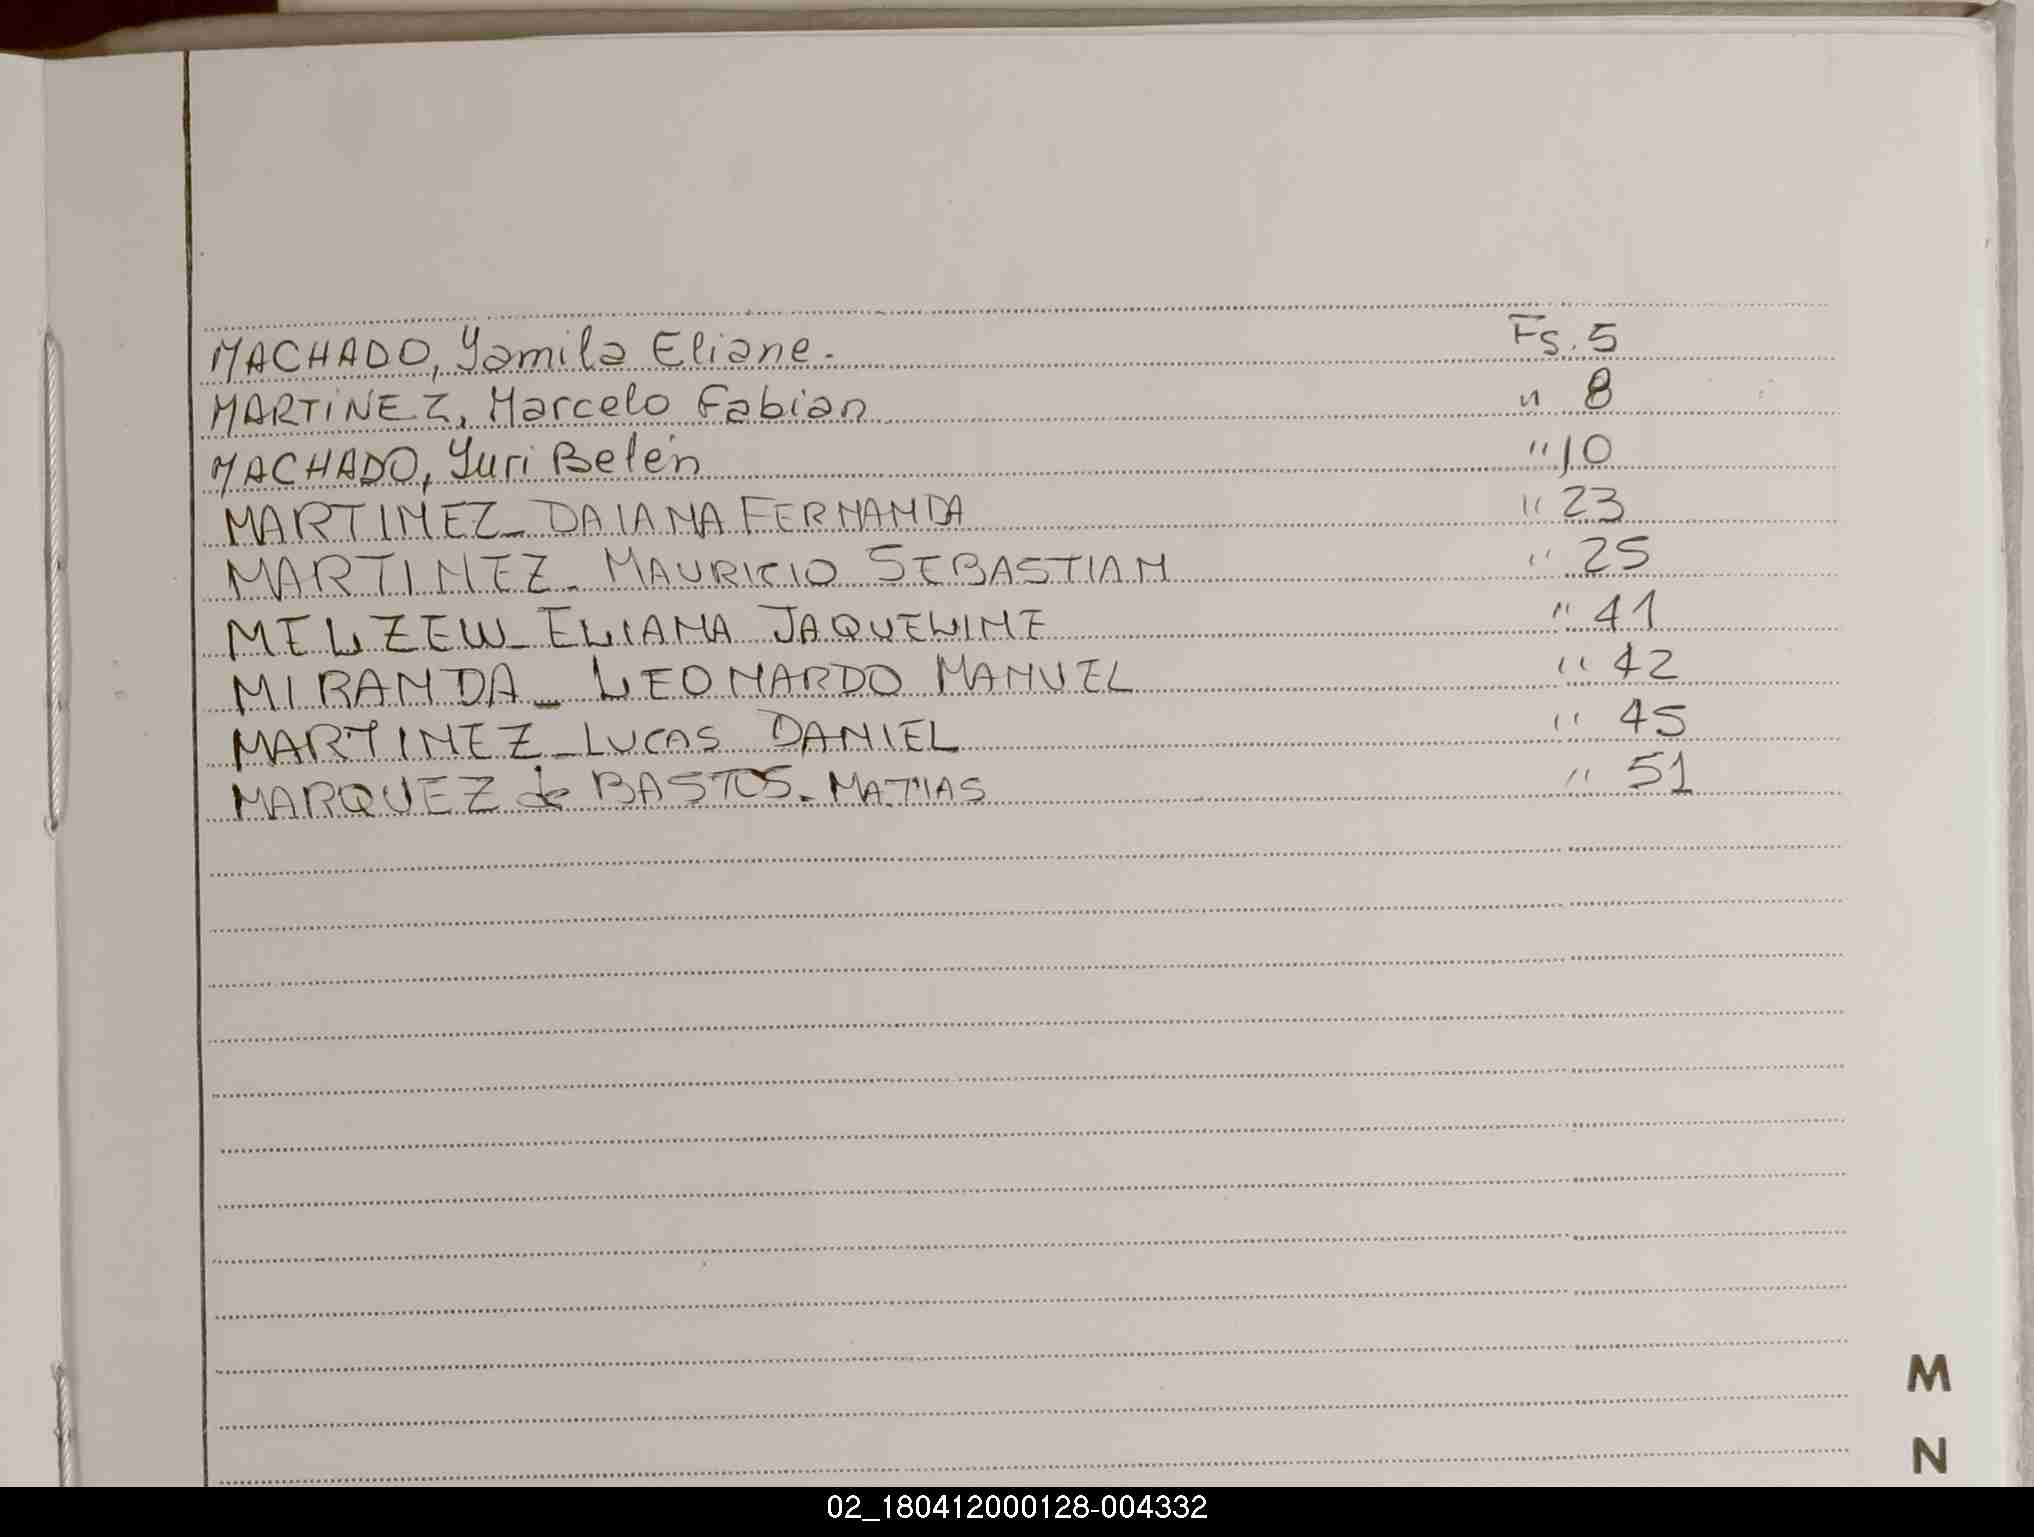 MACHADO, Yamila Eliane. Fs. 5
MARTINEZ, Marcelo Fabian " 8
MACHADO, Yuri Belén " 10
MARTINEZ_ DAIANA FERNANDA " 23
MARTINEZ_ MAURICIO SEBASTIAN " 25
MELZEW_ ELIANA JAQUELINE " 41
MIRANDA_ LEONARDO MANUEL " 42
MARTINEZ_ LUCAS DANIEL " 45
MARQUEZ de BASTOS_ MATIAS " 51
M
N
02_180412000128-004332